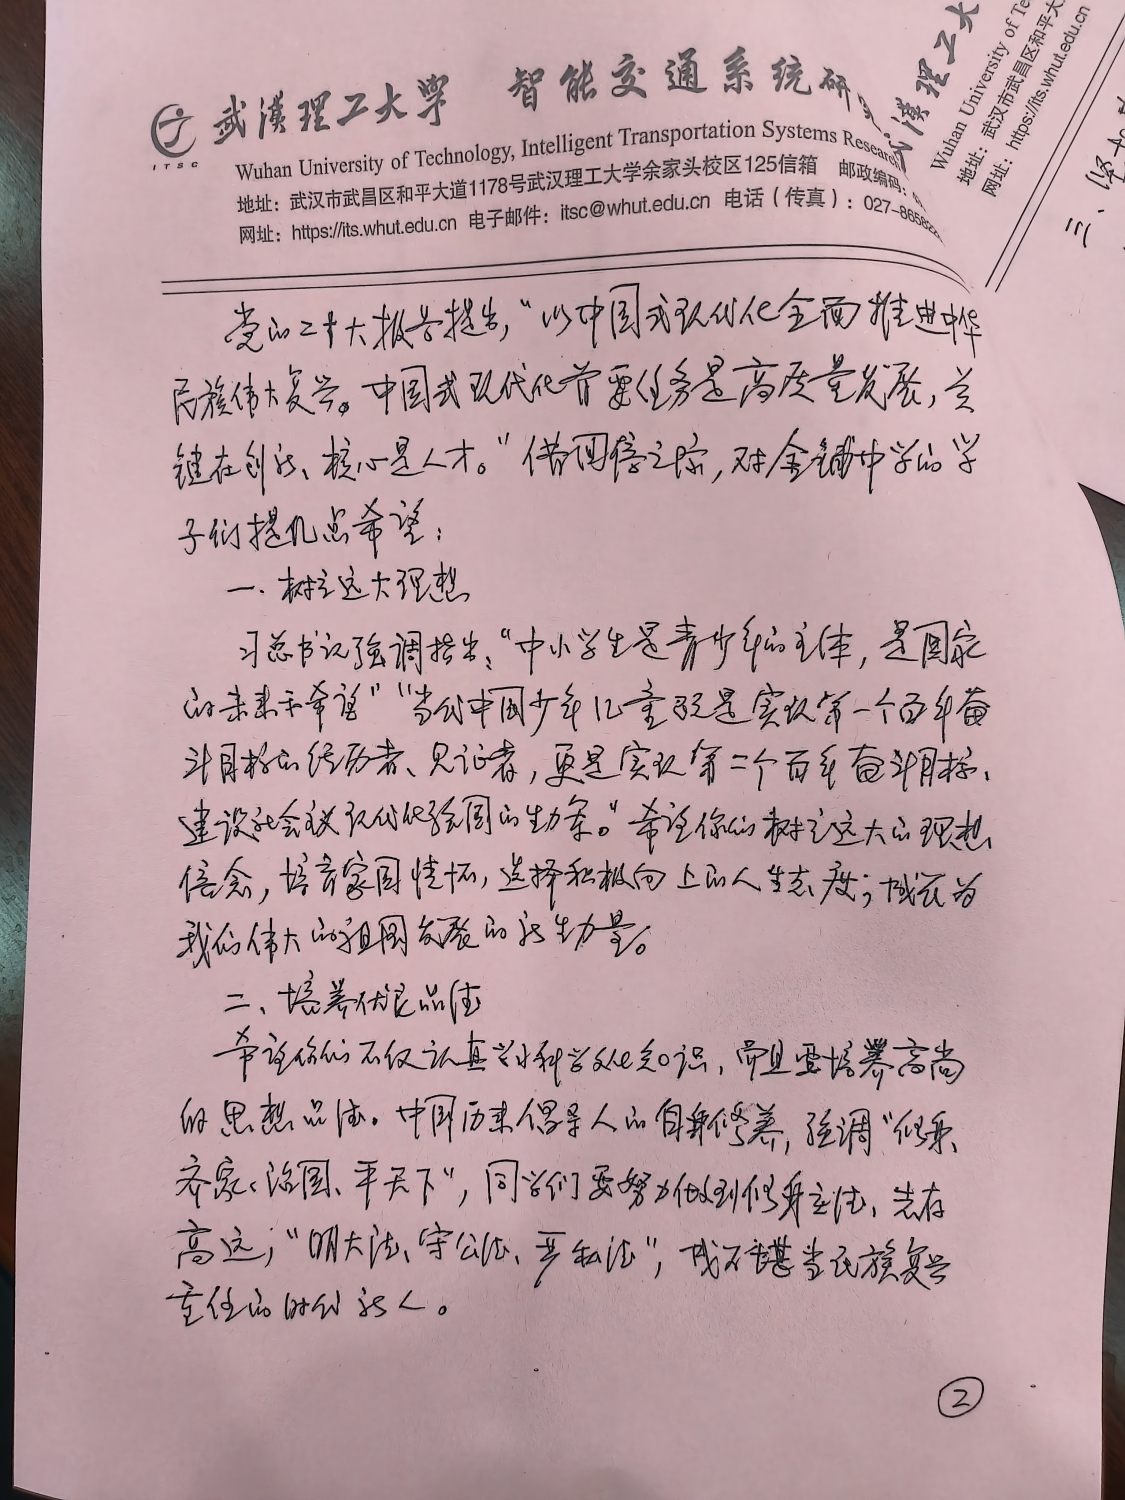 武漢理工大學 智能交通系统研
ITSC
Wuhan University of Technology, Intelligent Transportation Systems Research
地址：武汉市武昌区和平大道1178号武汉理工大学余家头校区125信箱 邮政编码：
网址：https://its.whut.edu.cn 电子邮件：itsc@whut.edu.cn 电话（传真）：027-865822
漢理工大
Wuhan University of Te
地址：武汉市武昌区和平大
网址：https://its.whut.edu.cn
三、
党的二十大报告提出，“以中国式现代化全面推进中华
民族伟大复兴。中国式现代化首要任务是高质量发展，关
键在创新、核心是人才。”借回信之际，对金铺中学的学
子们提几点希望：
一、树立远大理想
习总书记强调指出：“中小学生是青少年的主体，是国家
的未来和希望”“当代中国少年儿童既是实现第一个百年奋
斗目标的经历者、见证者，更是实现第二个百年奋斗目标、
建设社会主义现代化强国的生力军。”希望你们树立远大的理想
信念，培育家国情怀，选择积极向上的人生态度；成长为
我们伟大的祖国发展的新生力量。
二、培养优良品德
希望你们不仅认真学习科学文化知识，而且要培养高尚
的思想品德。中国历来倡导人的自身修养，强调“修身、
齐家、治国、平天下”，同学们要努力做到修身立德、志存
高远；“明大德、守公德、严私德”，成 堪当民族复兴
重任的时代新人。
2